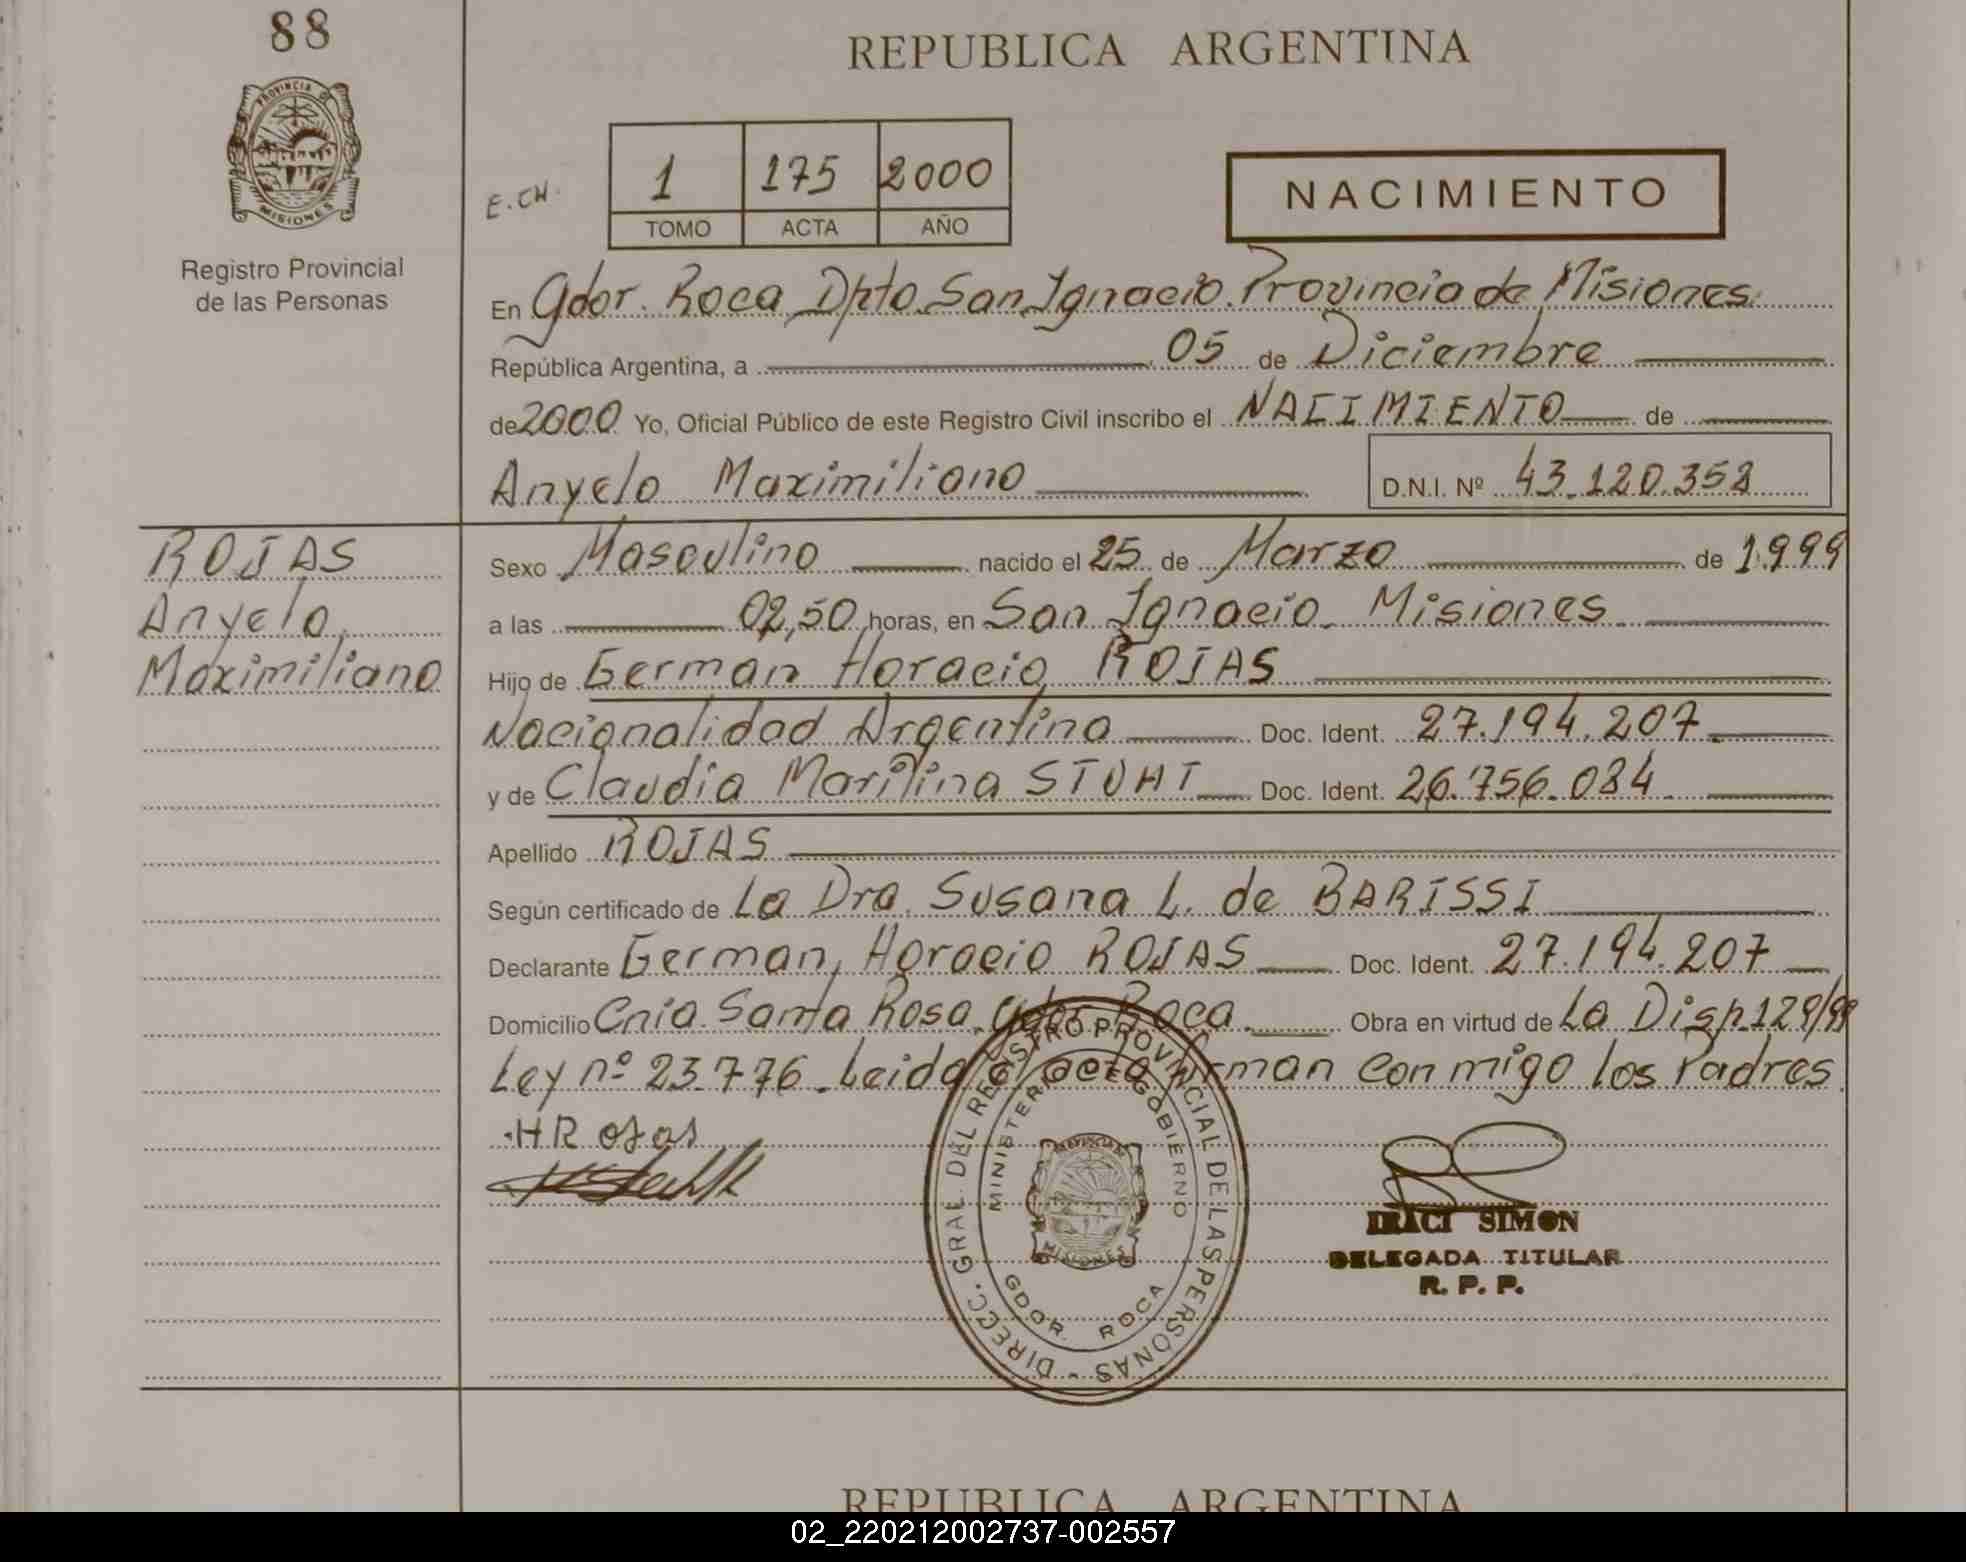 88
REPUBLICA ARGENTINA
PROVINCIA DE
MISIONES
Registro Provincial
de las Personas
E.CH.
1 175 2000
TOMO ACTA AÑO
NACIMIENTO
En Gdor. Roca Dpto. San Ignacio. Provincia de Misiones.
República Argentina, a 05 de Diciembre
de 2000 Yo, Oficial Público de este Registro Civil inscribo el NACIMIENTO de
Anyelo Maximiliano D.N.I. Nº 43.120.358
ROJAS
Anyelo
Maximiliano
Sexo Masculino nacido el 25 de Marzo de 1.999
a las 02,50 horas, en San Ignacio. Misiones
Hijo de German Horacio ROJAS
Nacionalidad Argentina Doc. Ident. 27.194.207
y de Claudia Marilina STUHT Doc. Ident. 26.756.084
Apellido ROJAS
Según certificado de La Dra. Susana L. de BARISSI
Declarante German Horacio ROJAS Doc. Ident. 27.194.207
Domicilio Cnia. Santa Rosa. Gdor. Roca. Obra en virtud de La Disp. 129/99
Ley nº 23.776. Leida el acta firman conmigo los Padres.
HRojas
DIRECC. GRAL DEL REGISTRO PROVINCIAL DE LAS PERSONAS -
MINISTERIO GOBIERNO
PROVINCIA
MISIONES
GDOR. ROCA
IRACI SIMON
DELEGADA TITULAR
R. P. P.
REPUBLICA ARGENTINA
02_220212002737-002557